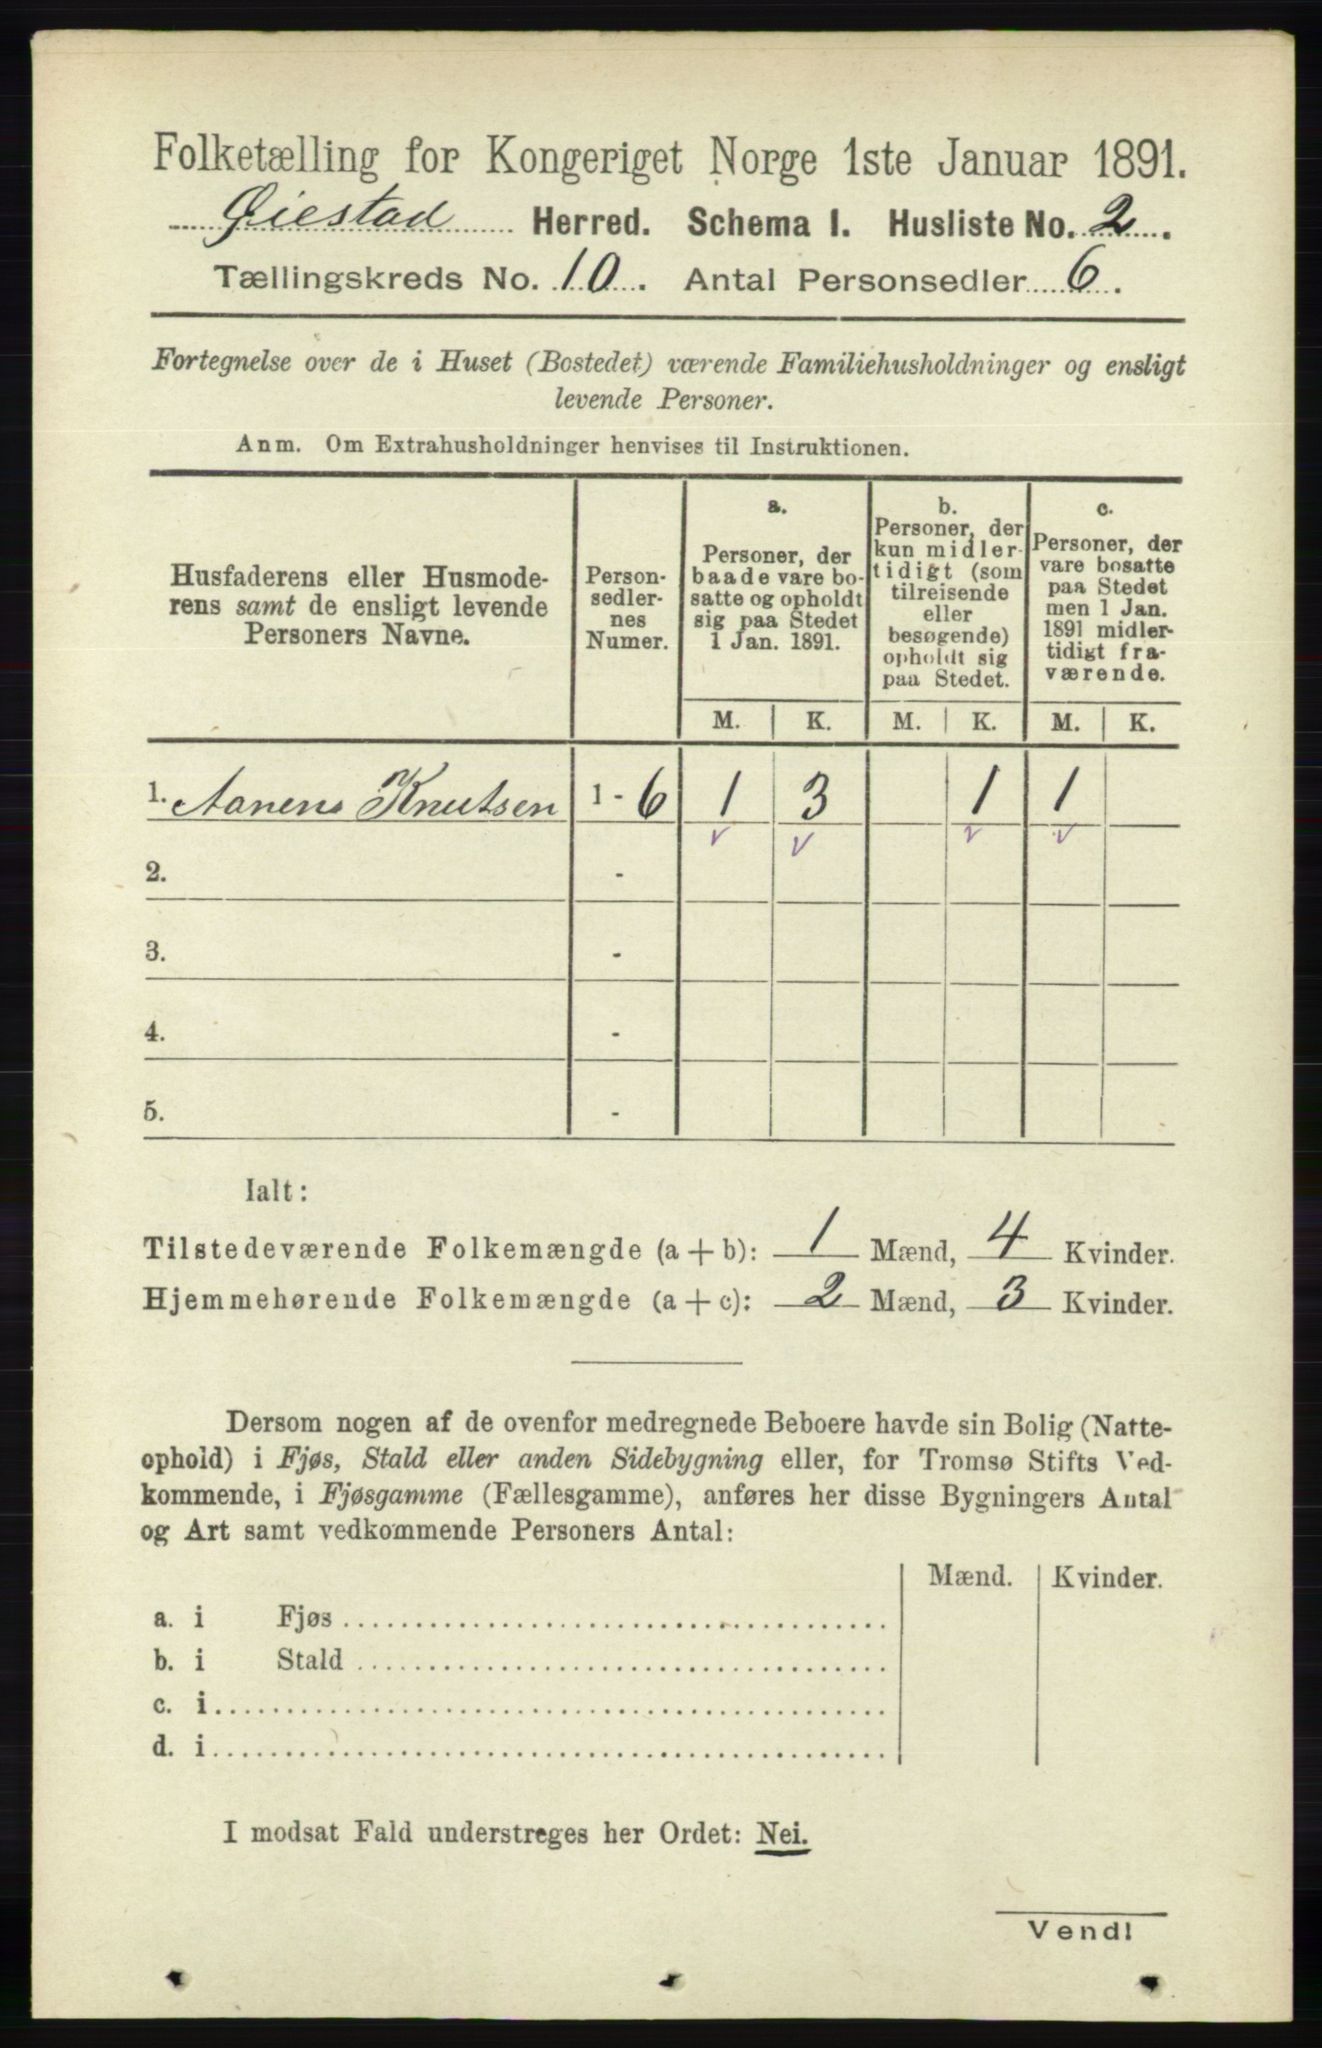 Folketælling for Kongeriget Norge 1ste Januar 1891.
Øiestad Herred. Schema I. Husliste No. 2.
Tællingskreds No. 10. Antal Personsedler 6.
Fortegnelse over de i Huset (Bostedet) værende Familiehusholdninger og ensligt
levende Personer.
Anm. Om Extrahusholdninger henvises til Instruktionen.
Husfaderens eller Husmode-
rens samt de ensligt levende
Personers Navne.
Person-
sedler-
nes
Numer.
a.
Personer, der
baade vare bo-
satte og opholdt
sig paa Stedet
1 Jan. 1891.
b.
Personer, der
kun midler-
tidigt (som
tilreisende
eller
besøgende)
opholdt sig
paa Stedet.
c.
Personer, der
vare bosatte
paa Stedet
men 1 Jan.
1891 midler-
tidigt fra-
værende.
M. K. M. K. M. K.
1. Aanens Knutsen 1 - 6 1 3 1 1
v v v v
2. -
3. -
4. -
5. -
Ialt:
Tilstedeværende Folkemængde (a + b): 1 Mænd, 4 Kvinder.
Hjemmehørende Folkemængde (a + c): 2 Mænd, 3 Kvinder.
Dersom nogen af de ovenfor medregnede Beboere havde sin Bolig (Natte-
ophold) i Fjøs, Stald eller anden Sidebygning eller, for Tromsø Stifts Ved-
kommende, i Fjøsgamme (Fællesgamme), anføres her disse Bygningers Antal
og Art samt vedkommende Personers Antal:
Mænd. Kvinder.
a. i Fjøs
b. i Stald
c. i
d. i
I modsat Fald understreges her Ordet: Nei.
Vend!